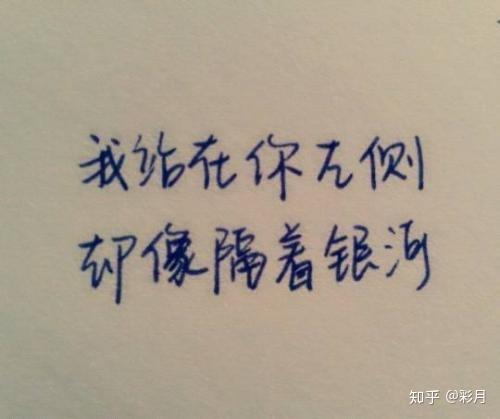 我站在你左侧
却像隔着银河
知乎 @彩月